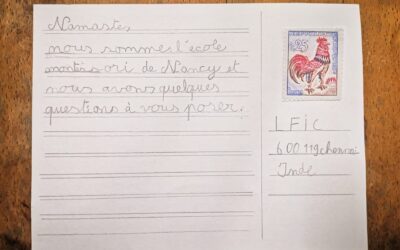 Namaste,
nous sommes l'école
montessori de Nancy et
nous avons quelques
questions à vous poser.
0,25
LFIC
600119 chennai
Inde